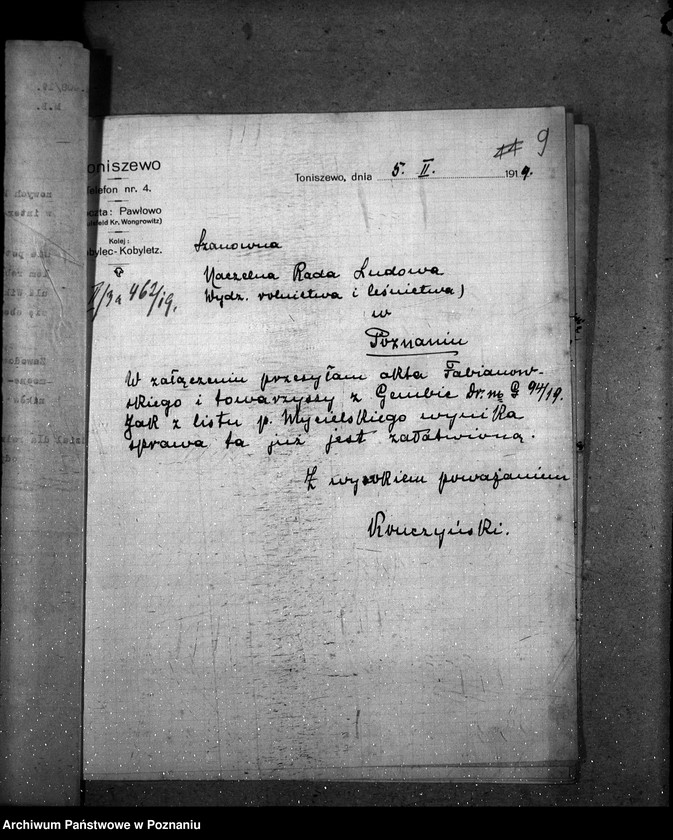 44 9
oniszewo
elefon nr. 4.
czta: Pawłowo
feld Kr. Wongrowitz)
Kolej:
bylec-Kobyletz.
Toniszewo, dnia 5. II. 1919.
Szanowna
Naczelna Rada Ludowa
Wydz. rolnictwa i leśnictwa)
w
Poznaniu
462/19.
W załączeniu przesyłam akta Fabianow-
skiego i towarzyszy z Gembic dr. nę G 94/19.
Jak z listu p. Wycielskiego wynika
sprawa ta już jest załatwioną.
Z wysokiem poważaniem
Kouczyński.
Archiwum Państwowe w Poznaniu